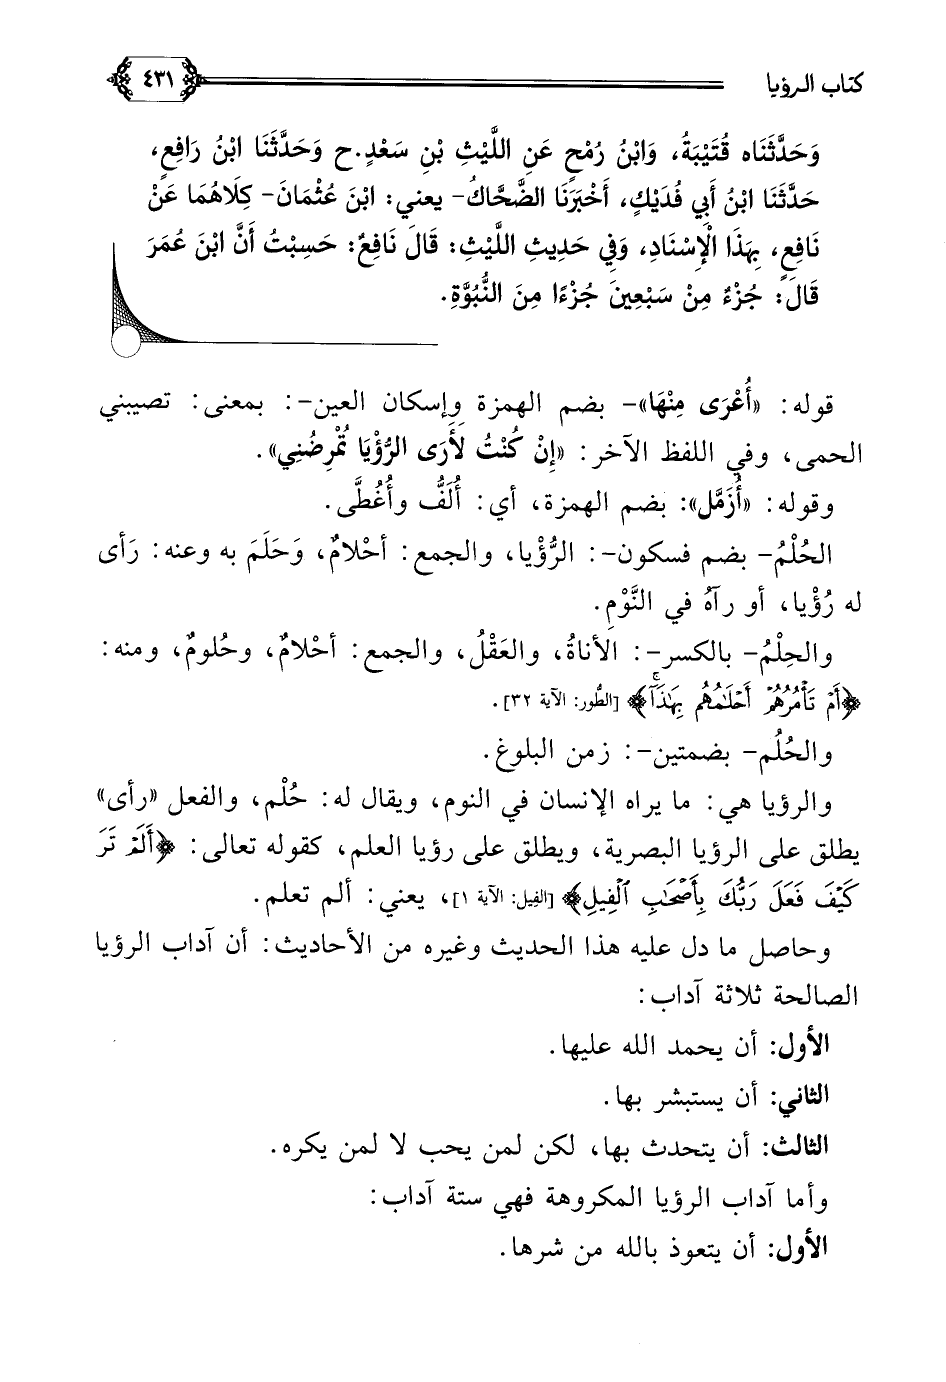 كتاب الرؤيا ٤٣١
وَحَدَّثَنَاه قُتَيْبَةُ، وَابْنُ رُمْحٍ عَنِ اللَّيْثِ بْنِ سَعْدٍ.ح وَحَدَّثَنَا ابْنُ رَافِعٍ،
حَدَّثَنَا ابْنُ أَبِي فُدَيْكٍ، أَخْبَرَنَا الضَّحَّاكُ- يعني: ابْنَ عُثْمَانَ- كِلَاهُمَا عَنْ
نَافِعٍ، بِهَذَا الْإِسْنَادِ، وَفِي حَدِيثِ اللَّيْثِ: قَالَ نَافِعٌ: حَسِبْتُ أَنَّ ابْنَ عُمَرَ
قَالَ: جُزْءٌ مِنْ سَبْعِينَ جُزْءًا مِنَ النُّبُوَّةِ.
قوله: «أُعْرَى مِنْهَا»- بضم الهمزة وإسكان العين-: بمعنى: تصيبني
الحمى، وفي اللفظ الآخر: «إِنْ كُنْتُ لَأَرَى الرُّؤْيَا تُمْرِضُنِي».
وقوله: «أُزَمَّل»: بضم الهمزة، أي: أُلَفُّ وأُغُطَّى.
الحُلْمُ- بضم فسكون-: الرُّؤْيا، والجمع: أحْلامٌ، وَحَلَمَ به وعنه: رَأى
له رُؤْيا، أو رآهُ في النَّوْمِ.
والحِلْمُ- بالكسر-: الأناةُ، والعَقْلُ، والجمع: أحْلامٌ، وحُلومٌ، ومنه:
﴿أَمۡ تَأۡمُرُهُمۡ أَحۡلَٰمُهُم بِهَٰذَآۚ﴾ [الطُّور: الآية ٣٢].
والحُلُم- بضمتين-: زمن البلوغ.
والرؤيا هي: ما يراه الإنسان في النوم، ويقال له: حُلْم، والفعل «رأى»
يطلق على الرؤيا البصرية، ويطلق على رؤيا العلم، كقوله تعالى: ﴿أَلَمۡ تَرَ
كَيۡفَ فَعَلَ رَبُّكَ بِأَصۡحَٰبِ ٱلۡفِيلِ﴾ [الفِيل: الآية ١]، يعني: ألم تعلم.
وحاصل ما دل عليه هذا الحديث وغيره من الأحاديث: أن آداب الرؤيا
الصالحة ثلاثة آداب:
الأول: أن يحمد الله عليها.
الثاني: أن يستبشر بها.
الثالث: أن يتحدث بها، لكن لمن يحب لا لمن يكره.
وأما آداب الرؤيا المكروهة فهي ستة آداب:
الأول: أن يتعوذ بالله من شرها.